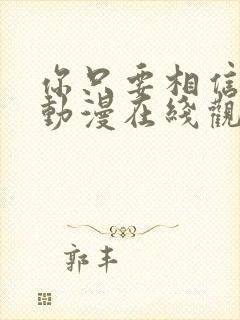 你只要相信
動漫在綫觀
郭丰